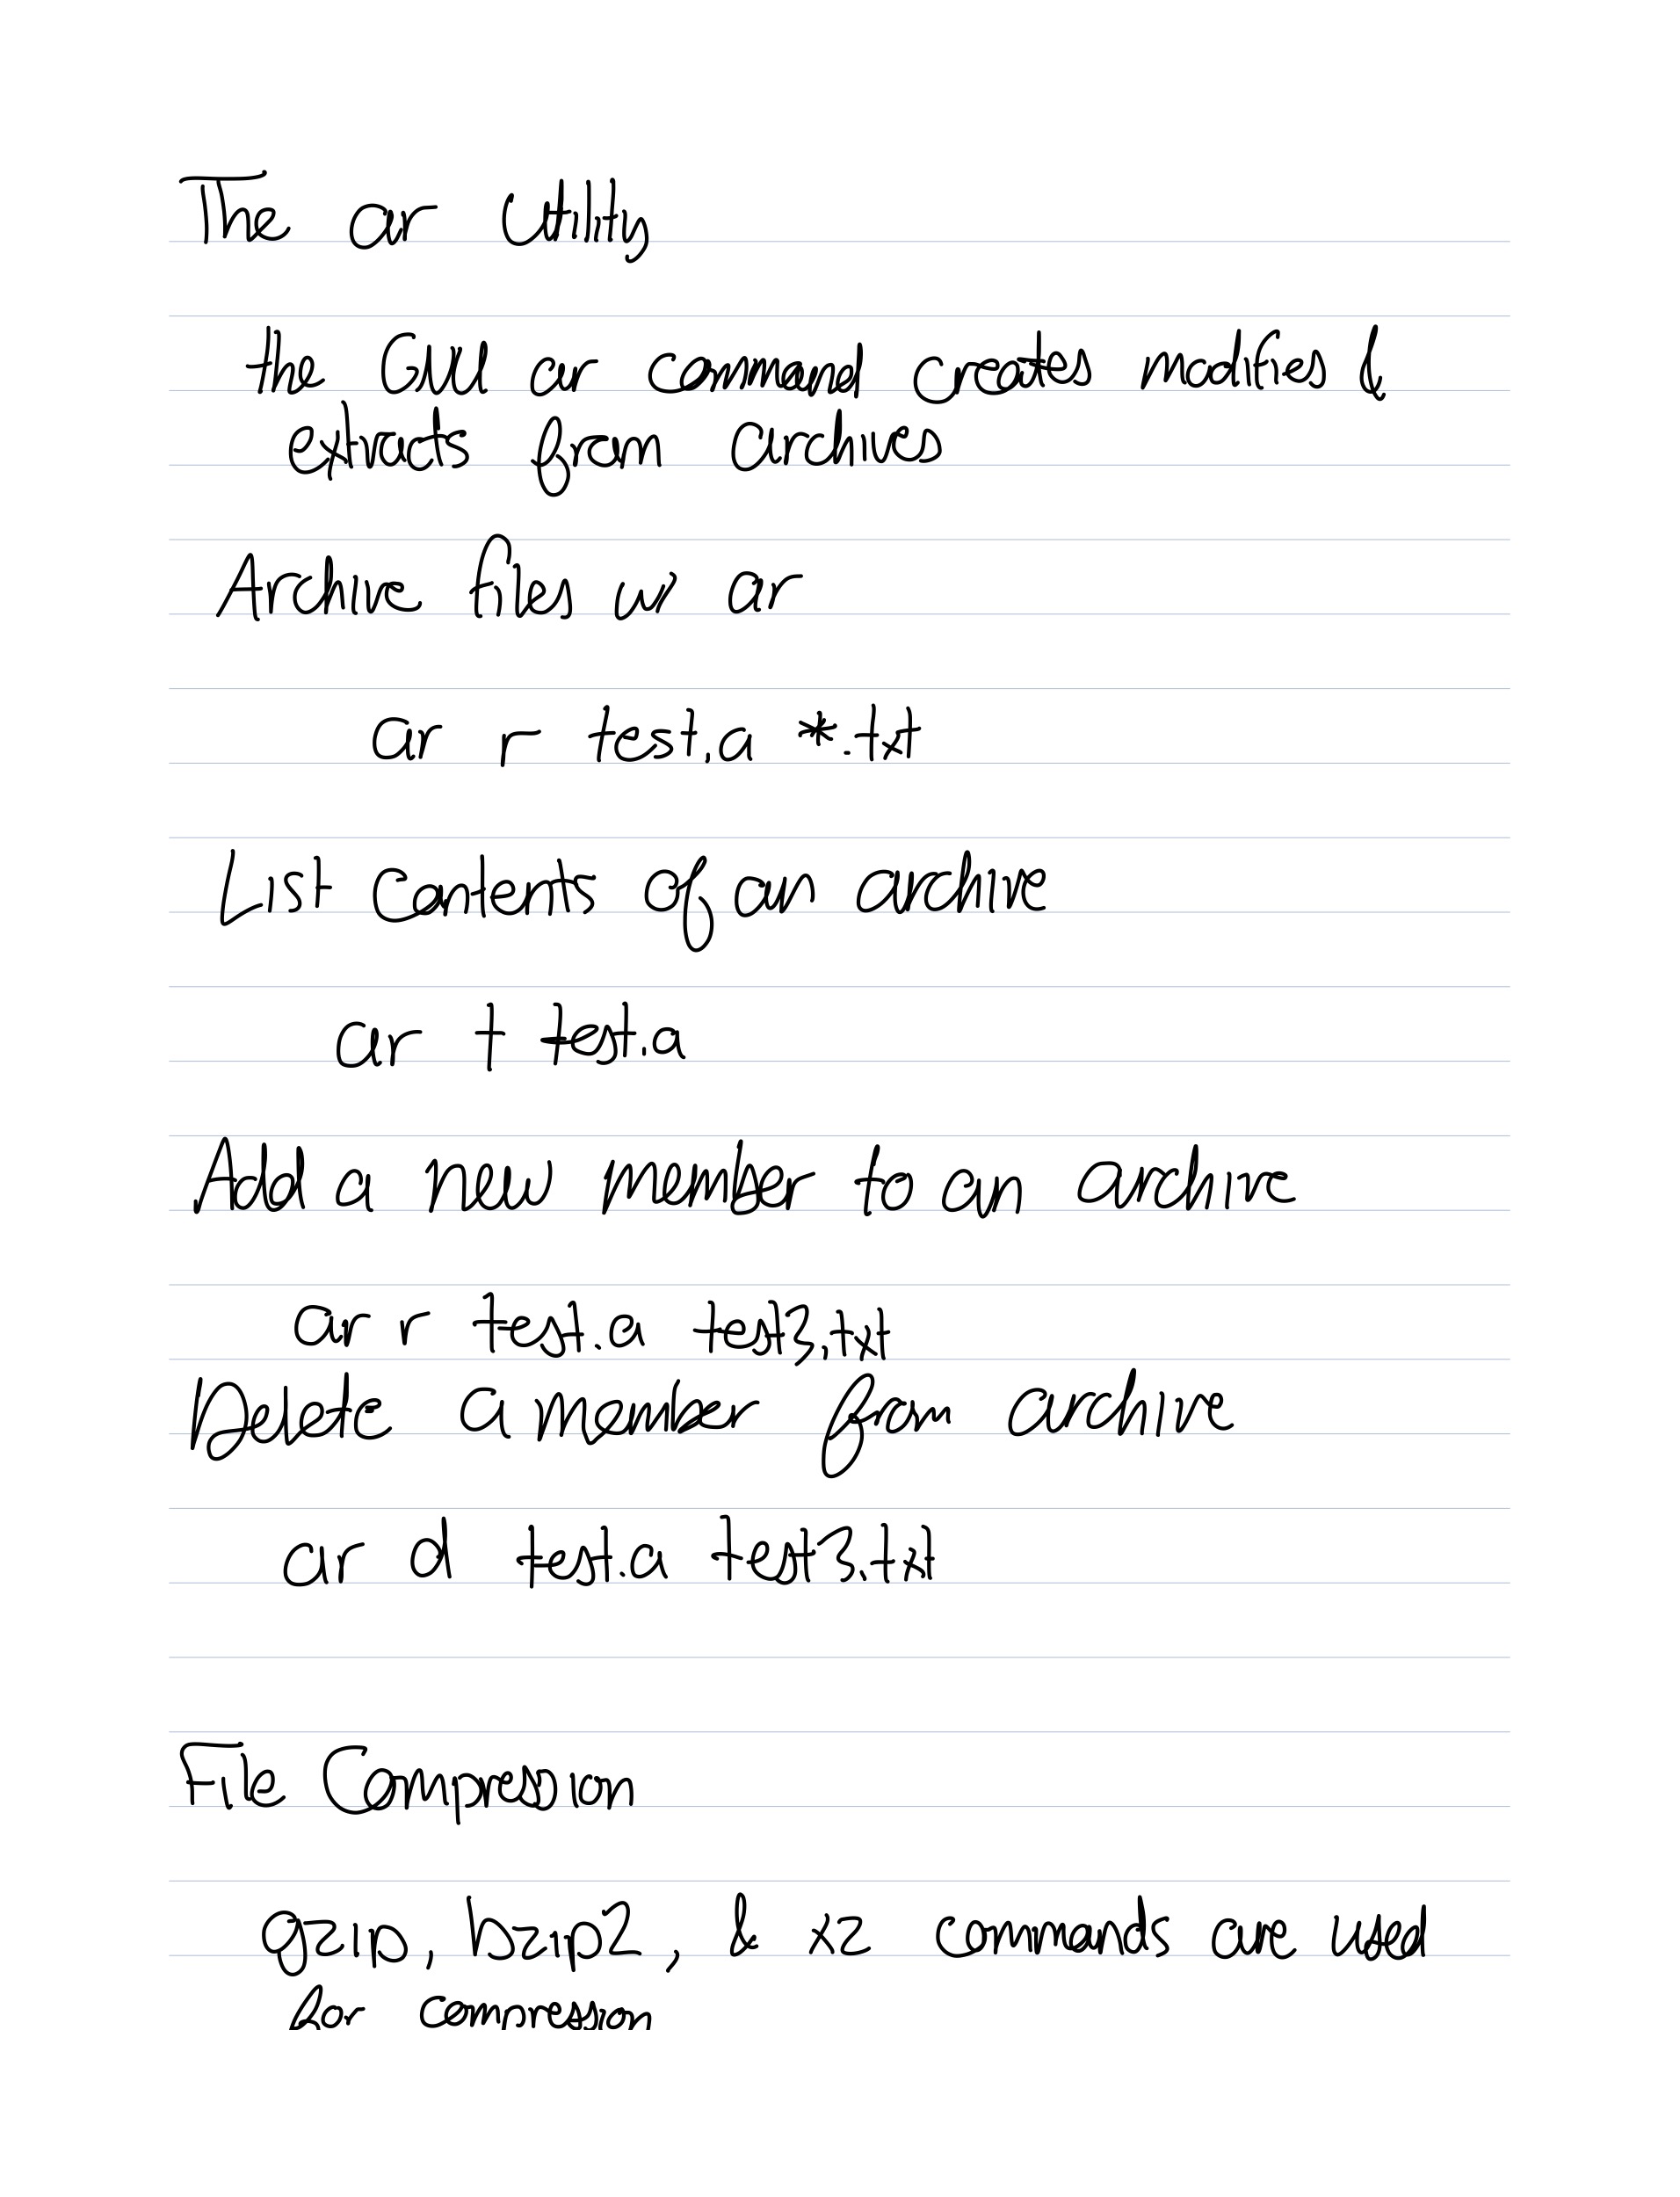 The ar utility
the GNU ar command creates modifies &
extracts from archives
Archive files w ar
ar r test.a *.txt
List Contents of an archive
ar t test.a
Add a new member to an archive
ar r test.a test3.txt
Delete a member from archive
ar d test.a test3.txt
File Compression
gzip, bzip2, & xz commands are used
for compression